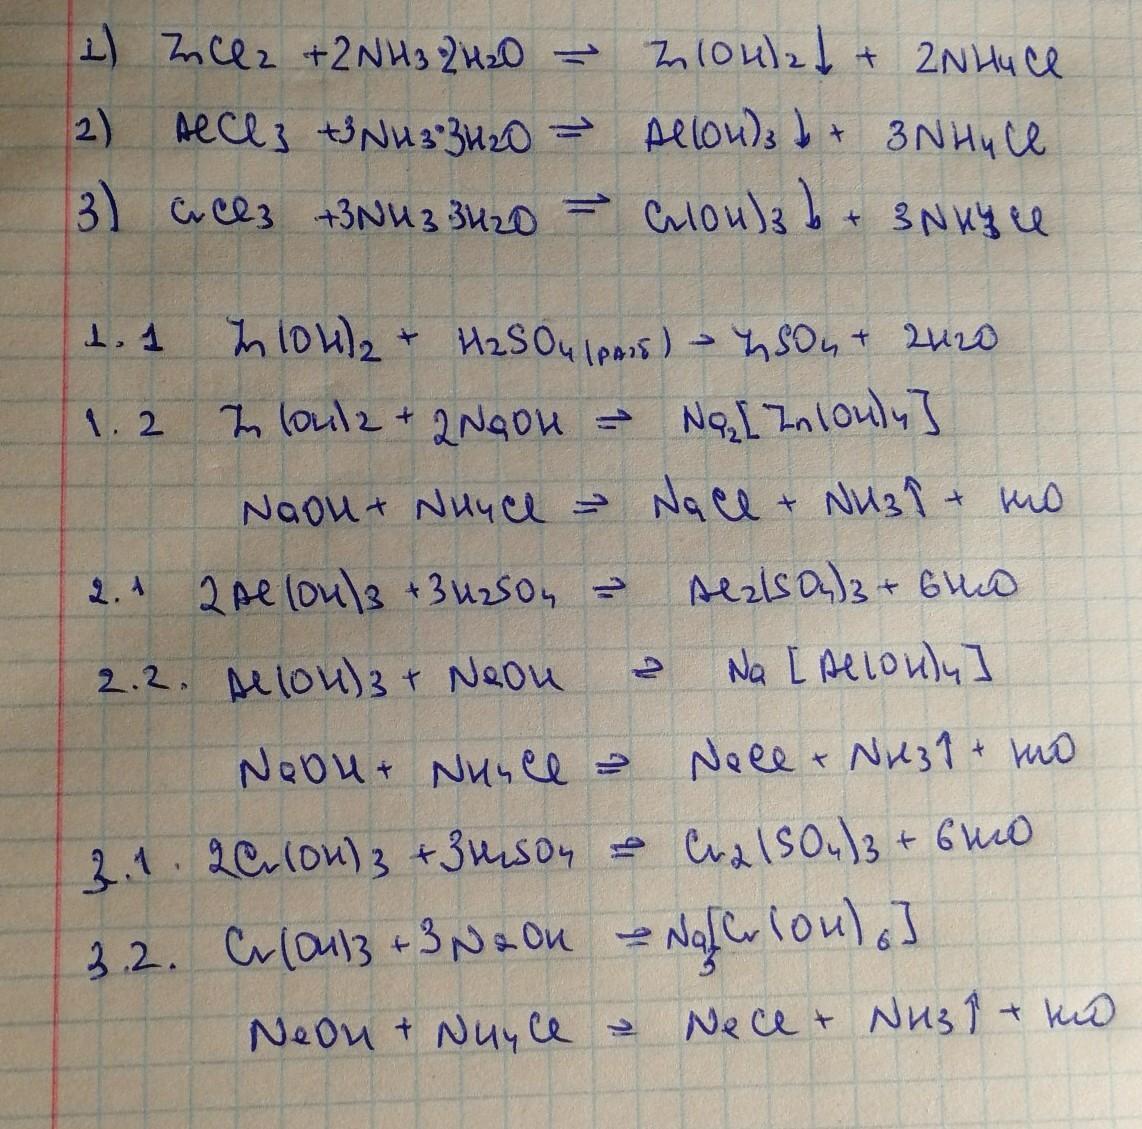 1) ZnCl2 +2NH3·2H2O ⇌ Zn(OH)2↓ + 2NH4Cl
2) AlCl3 +3NH3·3H2O ⇌ Al(OH)3↓ + 3NH4Cl
3) CrCl3 +3NH3 3H2O ⇌ Cr(OH)3↓ + 3NH4Cl
1. 1 Zn(OH)2 + H2SO4(разб) → ZnSO4 + 2H2O
1. 2 Zn(OH)2 + 2NaOH ⇌ Na2[Zn(OH)4]
NaOH + NH4Cl ⇌ NaCl + NH3↑ + H2O
2.1 2Al(OH)3 +3H2SO4 ⇌ Al2(SO4)3 + 6H2O
2.2. Al(OH)3 + NaOH ⇌ Na[Al(OH)4]
NaOH + NH4Cl ⇌ NaCl + NH3↑ + H2O
3.1. 2Cr(OH)3 +3H2SO4 ⇌ Cr2(SO4)3 + 6H2O
3.2. Cr(OH)3 +3NaOH ⇌ Na3[Cr(OH)6]
NaOH + NH4Cl ⇌ NaCl + NH3↑ + H2O